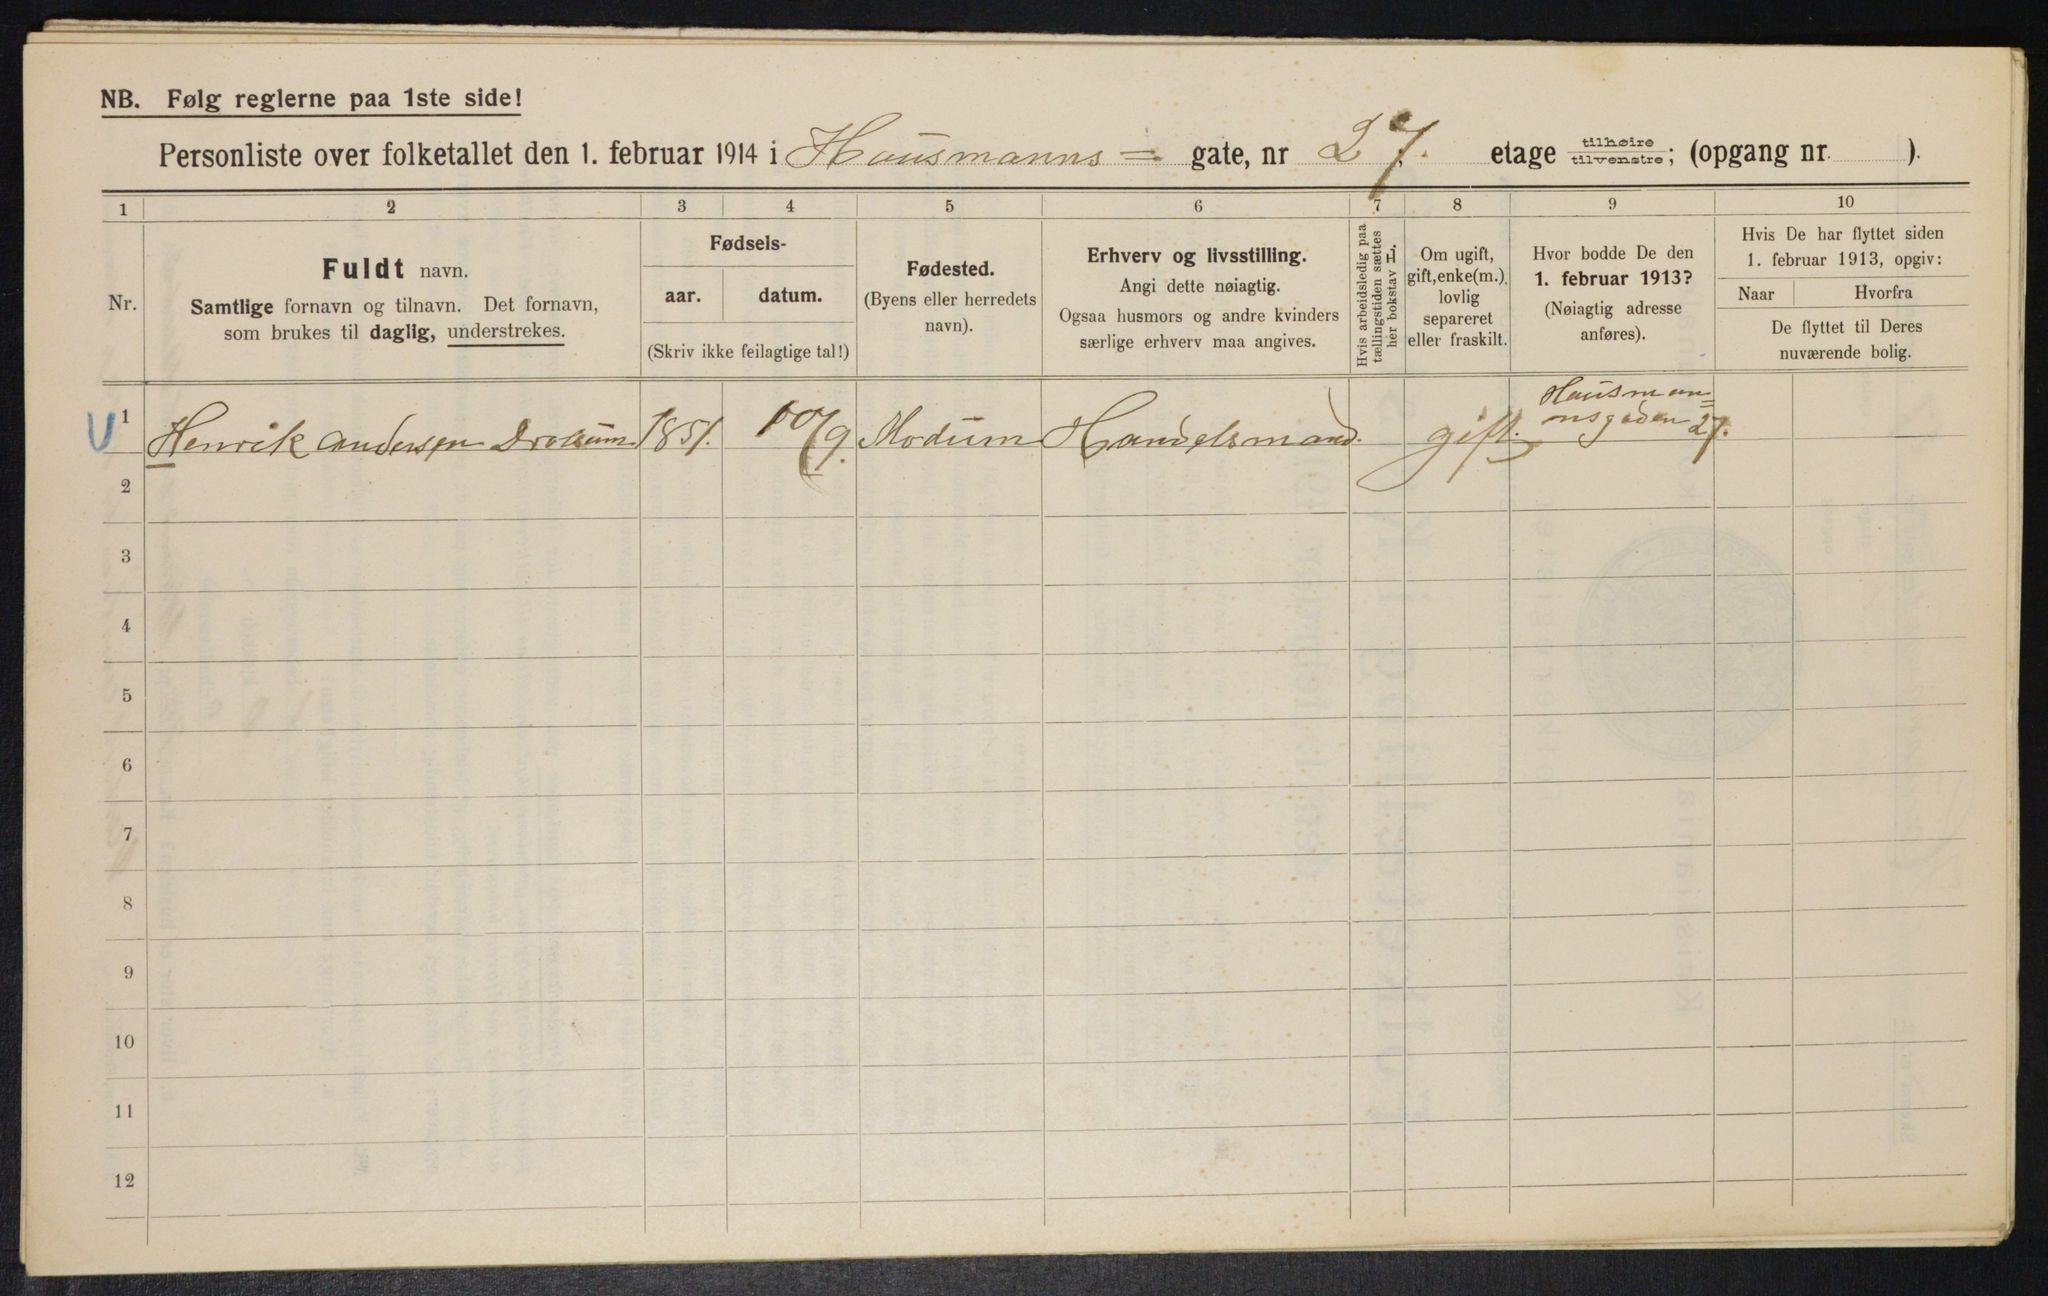 NB. Følg reglerne paa 1ste side!
Personliste over folketallet den 1. februar 1914 i Hausmanns = gate, nr 27. etage tilhøire tilvenstre; (opgang nr. ).
1 2 3 4 5 6 7 8 9 10
Nr.
Fuldt navn.
Samtlige fornavn og tilnavn. Det fornavn,
som brukes til daglig, understrekes.
Fødsels-
aar. datum.
(Skriv ikke feilagtige tal!)
Fødested.
(Byens eller herredets
navn).
Erhverv og livsstilling.
Angi dette nøiagtig.
Ogsaa husmors og andre kvinders
særlige erhverv maa angives.
Hvis arbeidsledig paa
tællingstiden sættes
her bokstav L.
Om ugift,
gift, enke(m.),
lovlig
separeret
eller fraskilt.
Hvor bodde De den
1. februar 1913?
(Nøiagtig adresse
anføres).
Hvis De har flyttet siden
1. februar 1913, opgiv:
Naar Hvorfra
De flyttet til Deres
nuværende bolig.
1 Henrik Andersen Drolsum 1851. 10/9. Modum Handelsmand. gift. Hausman=
nsgaden 27.
2
3
4
5
6
7
8
9
10
11
12